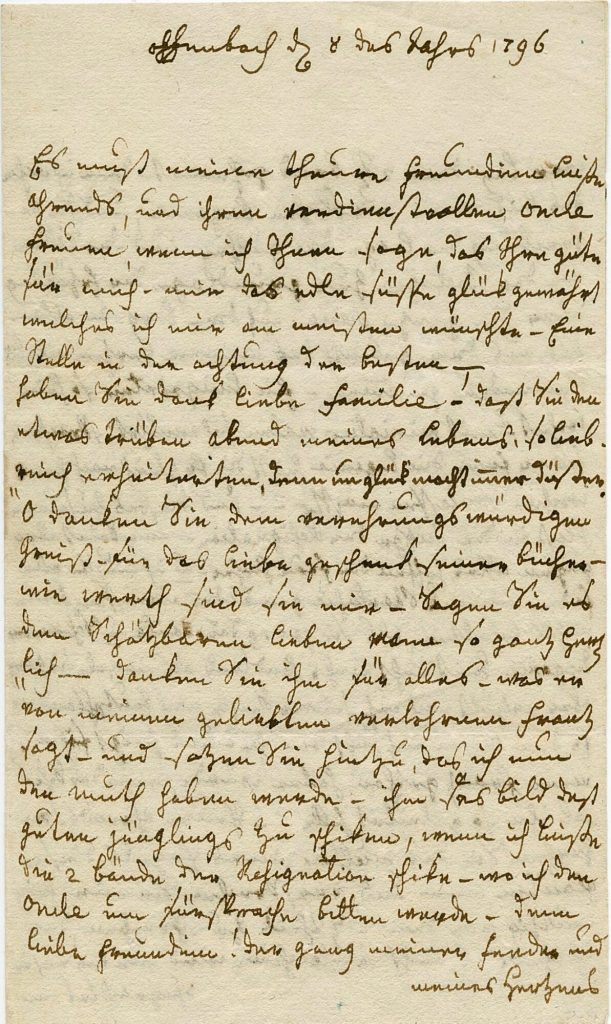 offenbach d 8 des Jahrs 1796
Es muß meine theure freundinn luiße
Ahrends, und ihren verdienstvollen oncle
freuen, wenn ich Ihnen sage, das Ihre güte
für mich - mir das edle süsse glük gewährt
welches ich mir am meisten wünschte - Eine
Stelle in der achtung der besten —
haben Sie dank liebe familie - daß Sie den
etwas trüben abend meines lebens, so lieb-
reich erheiterten, denn unglük macht immer düster.
O danken Sie dem verehrungswürdigen
Greiß - für das liebe geschenk seiner bücher -
wie werth sind sie mir - Sagen Sie es
dem Schätzbaren lieben so gantz hertz
lich — danken Sie ihm für alles - was er
von meinem geliebten verlohrnen Frantz
sagt - und sotzen Sie hintzu, das ich nun
den muth haben werde - ihm das bild deß
guten jünglings zu schiken, wenn ich luiße
die 2 bände der Resignation schike - wo ich den
oncle um fürsprache bitten werde - denn
liebe freundinn! der gang meiner feeder und
meines Hertzens